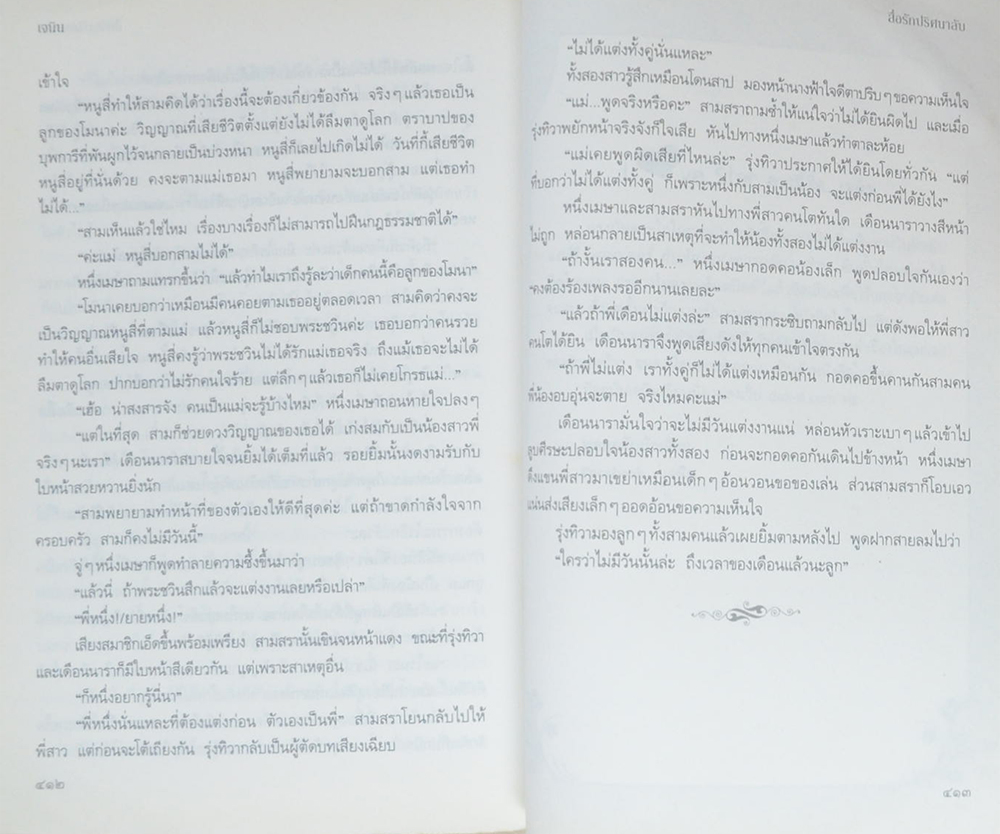 เจนิน
เข้าใจ
“หนูสี่ทำให้สามคิดได้ว่าเรื่องนี้จะต้องเกี่ยวข้องกัน จริงๆ แล้วเธอเป็น
ลูกของโมนาค่ะ วิญญาณที่เสียชีวิตตั้งแต่ยังไม่ได้ลืมตาดูโลก ตราบาปของ
บุพการีที่พันผูกไว้จนกลายเป็นบ่วงหนา หนูสี่ก็เลยไปเกิดไม่ได้ วันที่ก็เสียชีวิต
หนูสี่อยู่ที่นั่นด้วย คงจะตามแม่เธอมา หนูสี่พยายามจะบอกสาม แต่เธอทำ
ไม่ได้...”
“สามเห็นแล้วใช่ไหม เรื่องบางเรื่องก็ไม่สามารถไปฝืนกฎธรรมชาติได้”
“ค่ะแม่ หนูสี่บอกสามไม่ได้”
หนึ่งเมษาถามแทรกขึ้นว่า “แล้วทำไมเราถึงรู้ล่ะว่าเด็กคนนี้คือลูกของโมนา”
“โมนาเคยบอกว่าเหมือนมีคนคอยตามเธออยู่ตลอดเวลา สามคิดว่าคงจะ
เป็นวิญญาณหนูสี่ที่ตามแม่ แล้วหนูสี่ก็ไม่ชอบพระชวินค่ะ เธอบอกว่าคนรวย
ทำให้คนอื่นเสียใจ หนูสี่คงรู้ว่าพระชวินไม่ได้รักแม่เธอจริง ถึงแม้เธอจะไม่ได้
ลืมตาดูโลก ปากบอกว่าไม่รักคนใจร้าย แต่ลึกๆ แล้วเธอก็ไม่เคยโกรธแม่...”
“เฮ้อ น่าสงสารจัง คนเป็นแม่จะรู้บ้างไหม” หนึ่งเมษาถอนหายใจปลงๆ
“แต่ในที่สุด สามก็ช่วยดวงวิญญาณของเธอได้ เก่งสมกับเป็นน้องสาวพี่
จริงๆ นะเรา” เดือนนาราสบายใจจนยิ้มได้เต็มที่แล้ว รอยยิ้มนั้นงดงามรับกับ
ใบหน้าสวยหวานยิ่งนัก
“สามพยายามทำหน้าที่ของตัวเองให้ดีที่สุดค่ะ แต่ถ้าขาดกำลังใจจาก
ครอบครัว สามก็คงไม่มีวันนี้”
จู่ๆ หนึ่งเมษาก็พูดทำลายความซึ้งขึ้นมาว่า
“แล้วนี่ ถ้าพระชวินสึกแล้วจะแต่งงานเลยหรือเปล่า”
“พี่หนึ่ง!/ยายหนึ่ง!”
เสียงสมาชิกเอ็ดขึ้นพร้อมเพรียง สามสรานั้นเขินจนหน้าแดง ขณะที่รุ่งทิวา
และเดือนนาราก็มีใบหน้าสีเดียวกัน แต่เพราะสาเหตุอื่น
“ก็หนึ่งอยากรู้นี่นา”
“พี่หนึ่งนั่นแหละที่ต้องแต่งก่อน ตัวเองเป็นพี่” สามสราโยนกลับไปให้
พี่สาว แต่ก่อนจะโต้เถียงกัน รุ่งทิวากลับเป็นผู้ตัดบทเสียงเฉียบ
๔๑๒
สื่อรักปริศนาลับ
“ไม่ได้แต่งทั้งคู่นั่นแหละ”
ทั้งสองสาวรู้สึกเหมือนโดนสาป มองหน้านางฟ้าใจดีตาปริบๆ ขอความเห็นใจ
“แม่...พูดจริงหรือคะ” สามสราถามซ้ำให้แน่ใจว่าไม่ได้ยินผิดไป และเมื่อ
รุ่งทิวาพยักหน้าจริงจังก็ใจเสีย หันไปทางหนึ่งเมษาแล้วทำตาละห้อย
“แม่เคยพูดผิดเสียที่ไหนล่ะ” รุ่งทิวาประกาศให้ได้ยินโดยทั่วกัน “แต่
ที่บอกว่าไม่ได้แต่งทั้งคู่ ก็เพราะหนึ่งกับสามเป็นน้อง จะแต่งก่อนพี่ได้ยังไง”
หนึ่งเมษาและสามสราหันไปทางพี่สาวคนโตทันใด เดือนนาราวางสีหน้า
ไม่ถูก หล่อนกลายเป็นสาเหตุที่จะทำให้น้องทั้งสองไม่ได้แต่งงาน
“ถ้างั้นเราสองคน...” หนึ่งเมษากอดคอน้องเล็ก พูดปลอบใจกันเองว่า
“คงต้องร้องเพลงรออีกนานเลยละ”
“แล้วถ้าพี่เดือนไม่แต่งล่ะ” สามสรากระซิบถามกลับไป แต่ดังพอให้พี่สาว
คนโตได้ยิน เดือนนาราจึงพูดเสียงดังให้ทุกคนเข้าใจตรงกัน
“ถ้าพี่ไม่แต่ง เราทั้งคู่ก็ไม่ได้แต่งเหมือนกัน กอดคอขึ้นคานกันสามคน
พี่น้องอบอุ่นจะตาย จริงไหมคะแม่”
เดือนนารามั่นใจว่าจะไม่มีวันแต่งงานแน่ หล่อนหัวเราะเบาๆ แล้วเข้าไป
ลูบศีรษะปลอบใจน้องสาวทั้งสอง ก่อนจะกอดคอกันเดินไปข้างหน้า หนึ่งเมษา
ดึงแขนพี่สาวมาเขย่าเหมือนเด็กๆ อ้อนวอนขอของเล่น ส่วนสามสราก็โอบเอว
แน่นส่งเสียงเล็กๆ ออดอ้อนขอความเห็นใจ
รุ่งทิวามองลูกๆ ทั้งสามคนแล้วเผยยิ้มตามหลังไป พูดฝากสายลมไปว่า
“ใครว่าไม่มีวันนั้นล่ะ ถึงเวลาของเดือนแล้วนะลูก”
๔๑๓